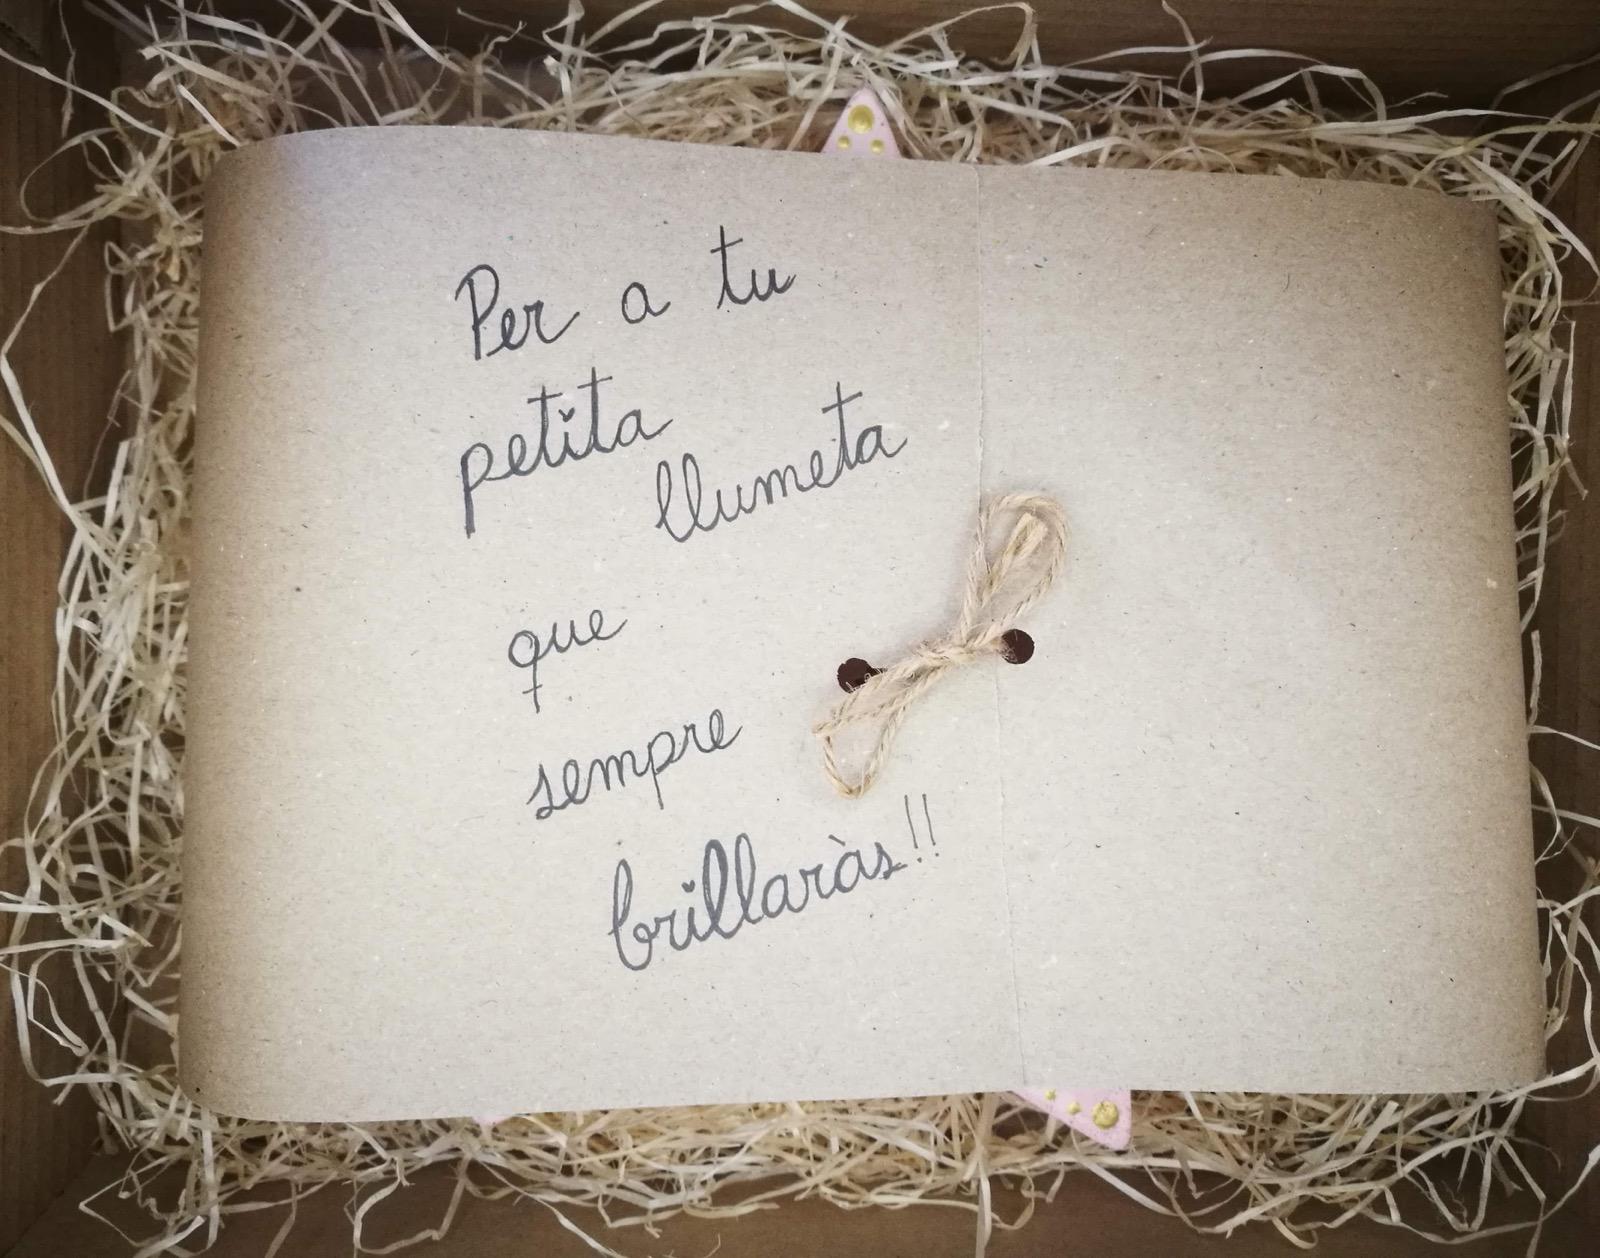 Per a tu
petita
llumeta
que
sempre
brillaràs!!